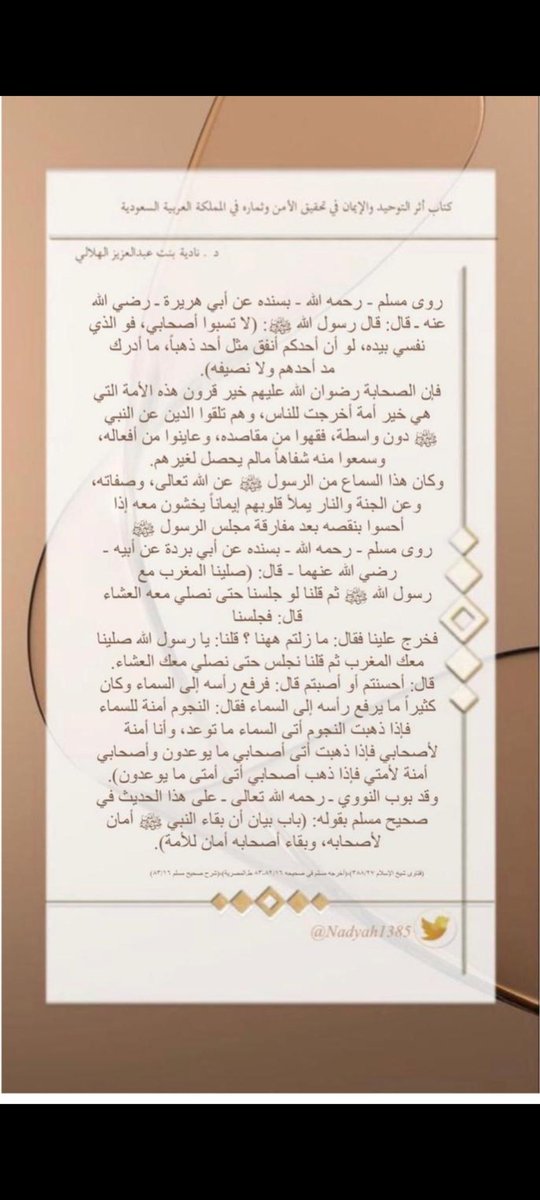 كتاب أثر التوحيد والإيمان في تحقيق الأمن وثماره في المملكة العربية السعودية
د . نادية بنت عبدالعزيز الهلالي
روى مسلم - رحمه الله - بسنده عن أبي هريرة ـ رضي الله
عنه ـ قال: قال رسول الله ﷺ: (لا تسبوا أصحابي، فو الذي
نفسي بيده، لو أن أحدكم أنفق مثل أحد ذهباً، ما أدرك
مد أحدهم ولا نصيفه).
فإن الصحابة رضوان الله عليهم خير قرون هذه الأمة التي
هي خير أمة أخرجت للناس، وهم تلقوا الدين عن النبي
ﷺ دون واسطة، ففهوا من مقاصده، وعاينوا من أفعاله،
وسمعوا منه شفاهاً مالم يحصل لغيرهم.
وكان هذا السماع من الرسول ﷺ عن الله تعالى، وصفاته،
وعن الجنة والنار يملأ قلوبهم إيماناً يخشون معه إذا
أحسوا بنقصه بعد مفارقة مجلس الرسول ﷺ
روى مسلم - رحمه الله - بسنده عن أبي بردة عن أبيه -
رضي الله عنهما - قال: (صلينا المغرب مع
رسول الله ﷺ ثم قلنا لو جلسنا حتى نصلي معه العشاء
قال: فجلسنا
فخرج علينا فقال: ما زلتم ههنا ؟ قلنا: يا رسول الله صلينا
معك المغرب ثم قلنا نجلس حتى نصلي معك العشاء.
قال: أحسنتم أو أصبتم قال: فرفع رأسه إلى السماء وكان
كثيراً ما يرفع رأسه إلى السماء فقال: النجوم أمنة للسماء
فإذا ذهبت النجوم أتى السماء ما توعد، وأنا أمنة
لأصحابي فإذا ذهبت أتى أصحابي ما يوعدون وأصحابي
أمنة لأمتي فإذا ذهب أصحابي أتى أمتى ما يوعدون).
وقد بوب النووي ـ رحمه الله تعالى ـ على هذا الحديث في
صحيح مسلم بقوله: (باب بيان أن بقاء النبي ﷺ أمان
لأصحابه، وبقاء أصحابه أمان للأمة).
(فتاوى شيخ الإسلام ٣٨٨/٢٧)،(أخرجه مسلم في صحيحه ٨٢/١٦-٨٣ ط.المصرية)،(شرح صحيح مسلم ٨٣/١٦)
@Nadyah1385